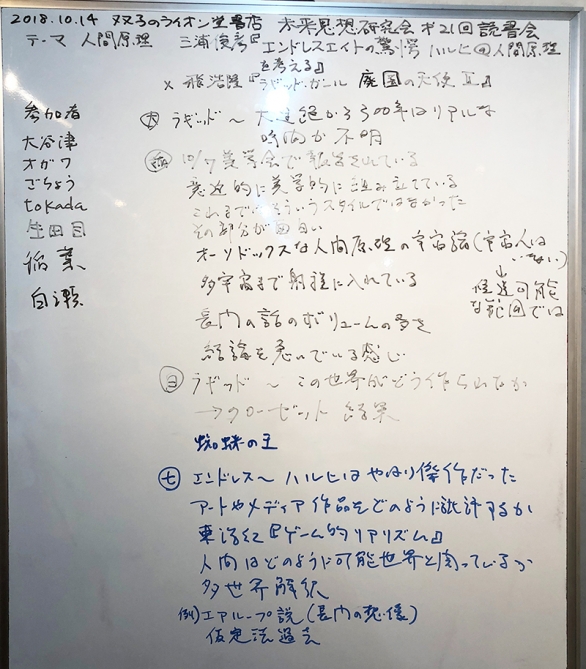 2018.10.14 双子のライオン堂書店 未来思想研究会 第21回読書会
テーマ 人間原理 三浦俊彦『エンドレスエイトの驚愕 ハルヒ@人間原理
を考える』
× 飛浩隆『ラギッド・ガール 廃園の天使Ⅱ』
参加者
大谷津
オガワ
ごちょう
tokada
生田目
稲葉
白瀬
大 ラギッド〜 大途絶から300年はリアルな
時間か不明
稲 10/7 美学会で報告されている
意識的に美学的に組み立てている
これまでにそういうスタイルではなかった
その部分が面白い
オーソドックスな人間原理の宇宙論(宇宙人は
いない)
↓
促進可能
な範囲では
多宇宙まで射程に入れている
長門の話のボリュームの多さ
結論を急いでいる感じ
ラギッド〜 この世界がどう作られたか
→クローゼット
蜘蛛の王
七 エンドレス〜 ハルヒはやはり傑作だった
アートやメディア作品をどのように批評するか
東浩紀『ゲーム的リアリズム』
人間はどのように可能世界と関っているか
多世界解釈
例)エアループ説(長門の想像)
仮定法過去